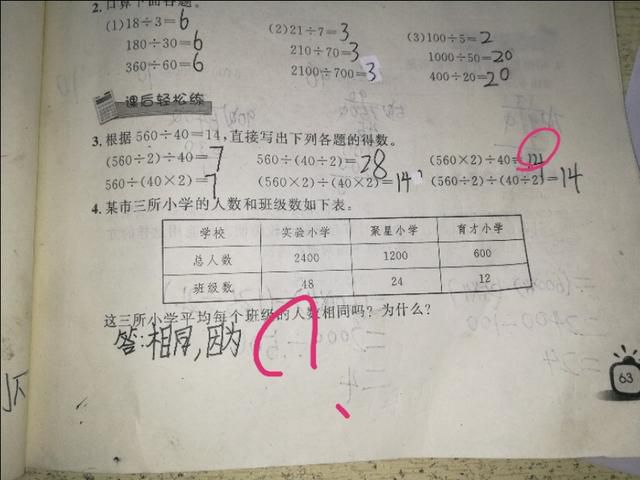 2.口算下面各题。
(1)18÷3=6 (2)21÷7=3 (3)100÷5=2
180÷30=6 210÷70=3 1000÷50=20
360÷60=6 2100÷700=3 400÷20=20
课后轻松练
3.根据560÷40=14,直接写出下列各题的得数。
(560÷2)÷40=7 560÷(40÷2)=28 (560×2)÷40=
560÷(40×2)=7 (560×2)÷(40×2)=14 (560÷2)÷(40÷2)=14
4.某市三所小学的人数和班级数如下表。
学校 实验小学 聚星小学 育才小学
总人数 2400 1200 600
班级数 48 24 12
这三所小学平均每个班级的人数相同吗?为什么?
答:相同,因为
63